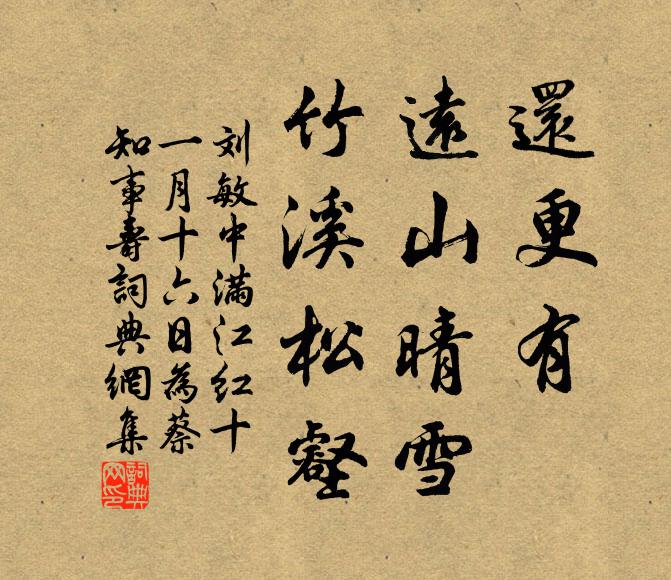 還更有
遠山晴雪
竹溪松壑
刘敏中满江红十
一月十六日為蔡
知事壽詞典網集
詞典网印